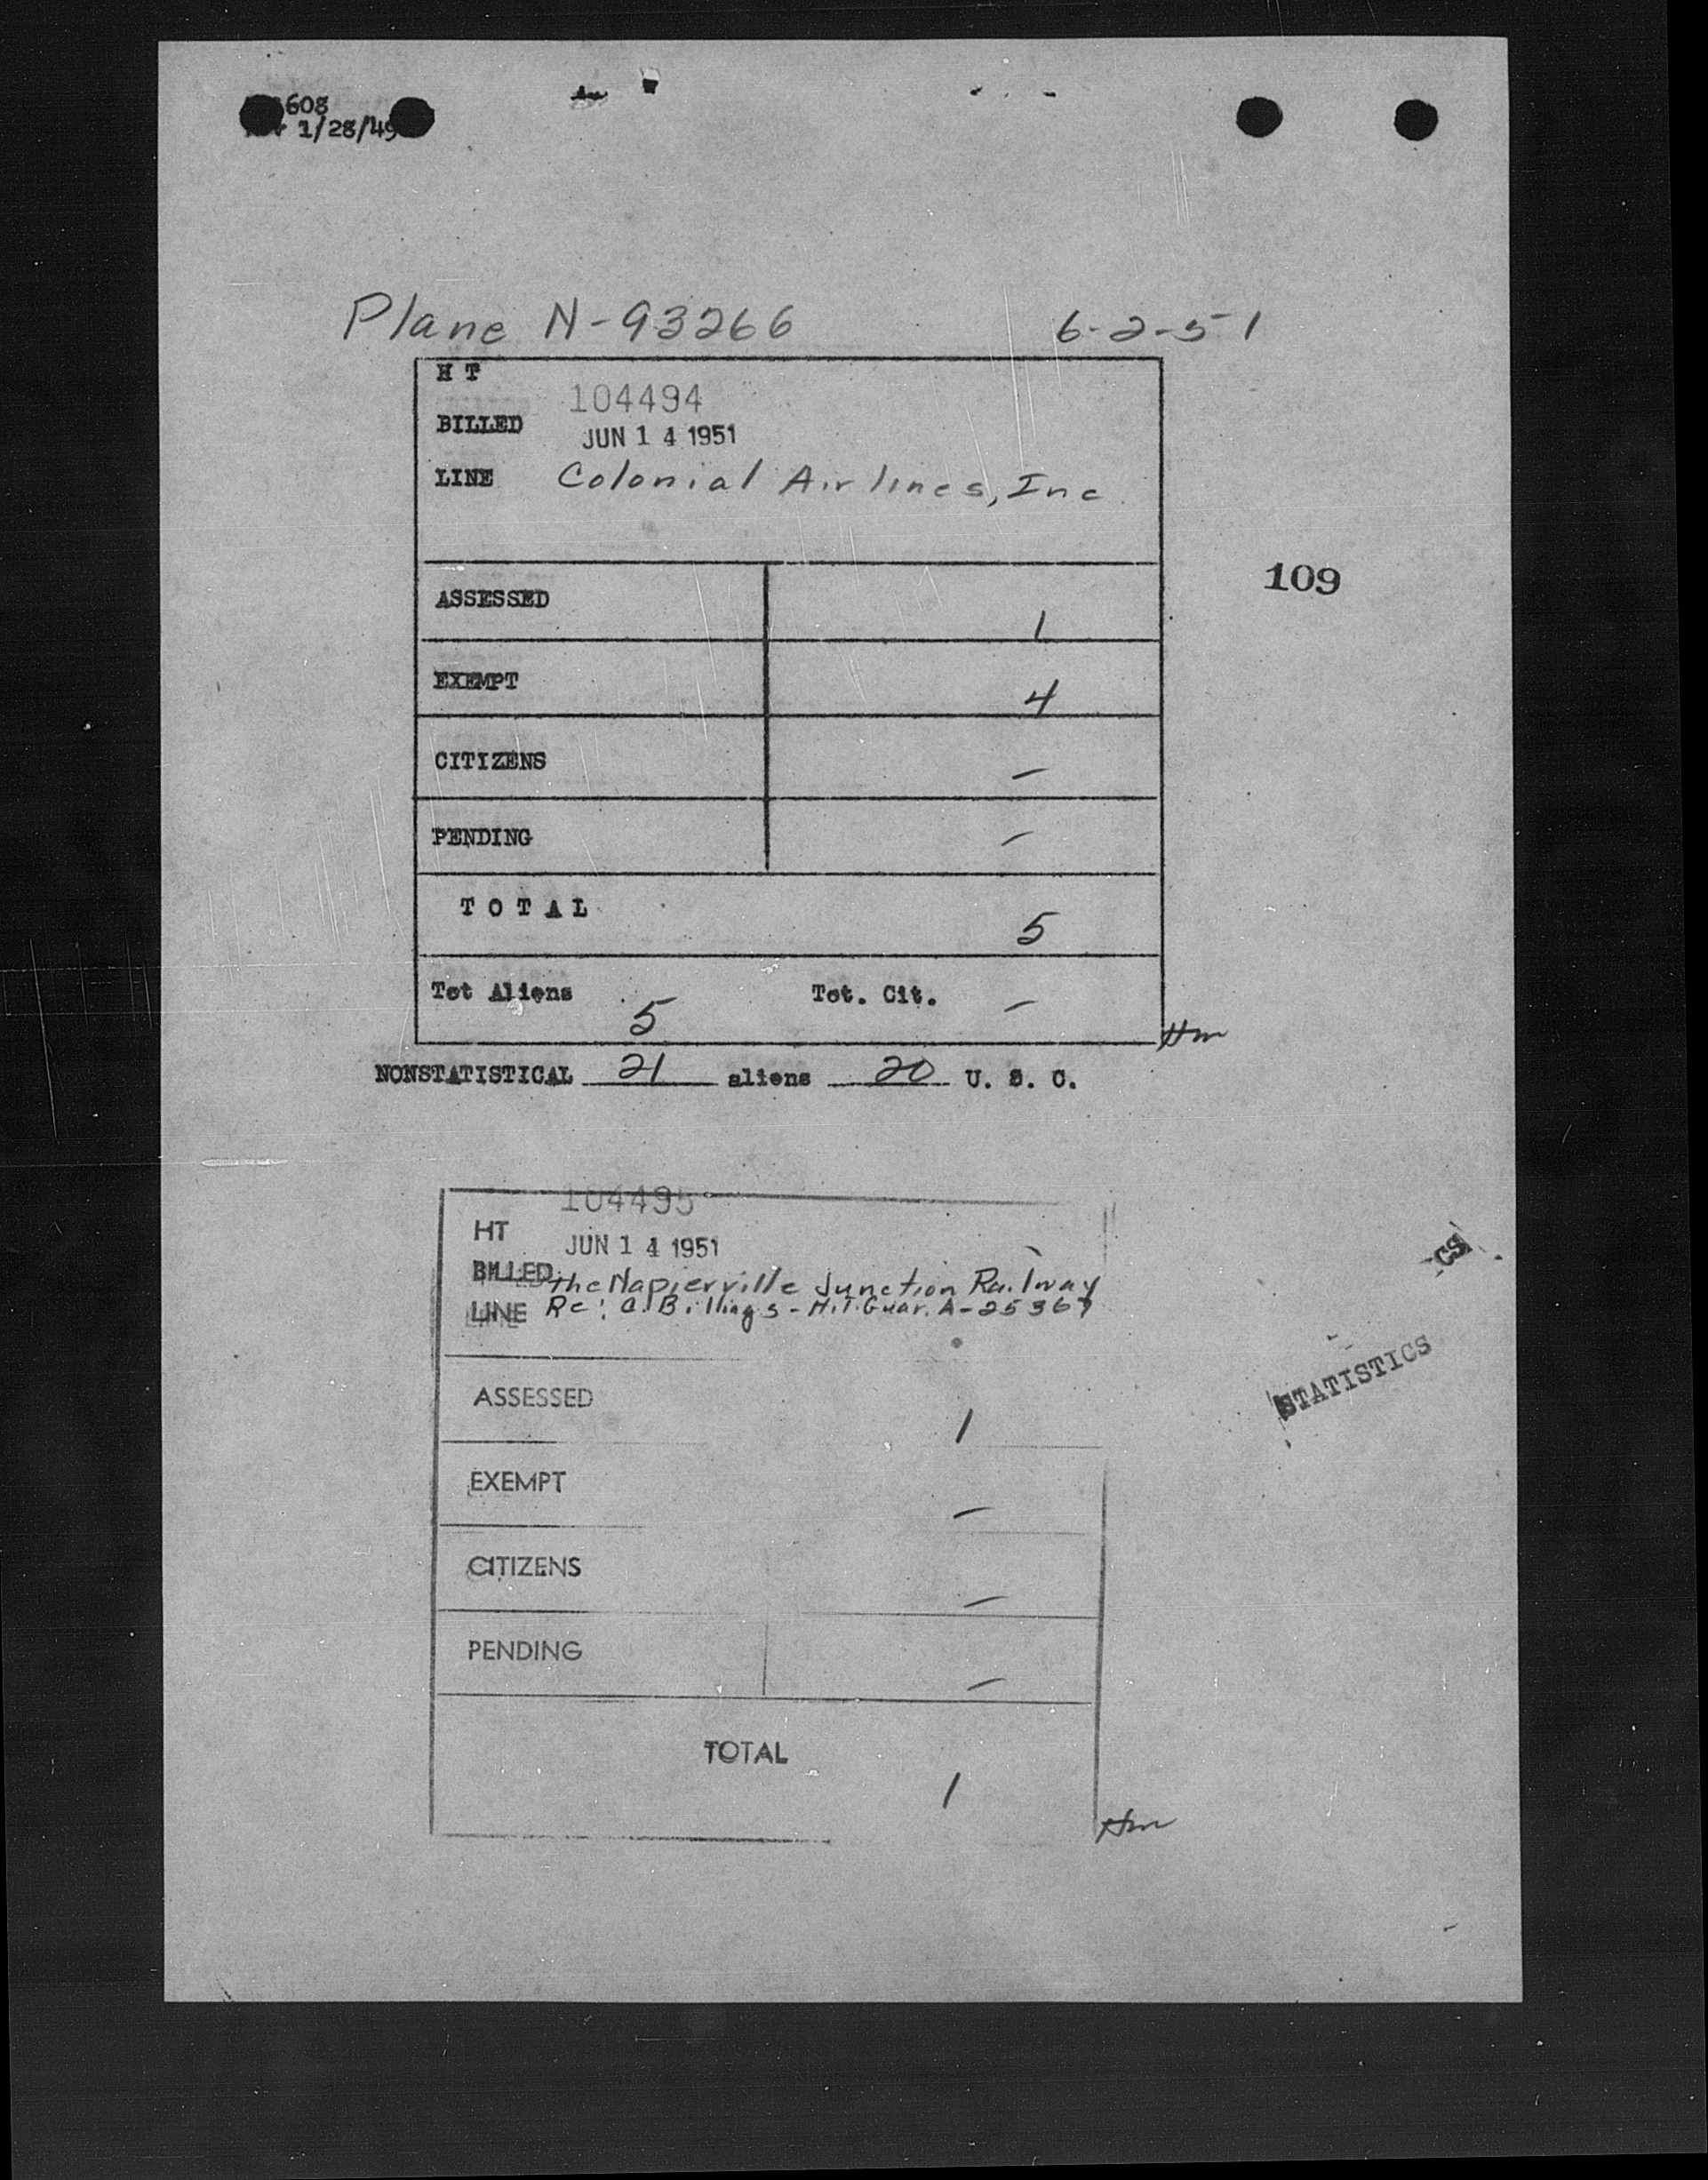 608
1/28/49
Plane N-93266 6-2-51
H T
104494
BILLED
JUN 14 1951
LINE Colonial Airlines, Inc
109
ASSESSED 1
EXEMPT 4
CITIZENS –
PENDING –
TOTAL 5
Tot Aliens 5 Tot. Cit. –
Hm
NONSTATISTICAL 21 aliens 20 U. S. C.
104495
HT
JUN 14 1951
BILLED the Napierville Junction Railway
LINE Re: C. Billings - H.T. Guar. A-25367
CS
STATISTICS
ASSESSED 1
EXEMPT –
CITIZENS –
PENDING –
TOTAL
1
Hm